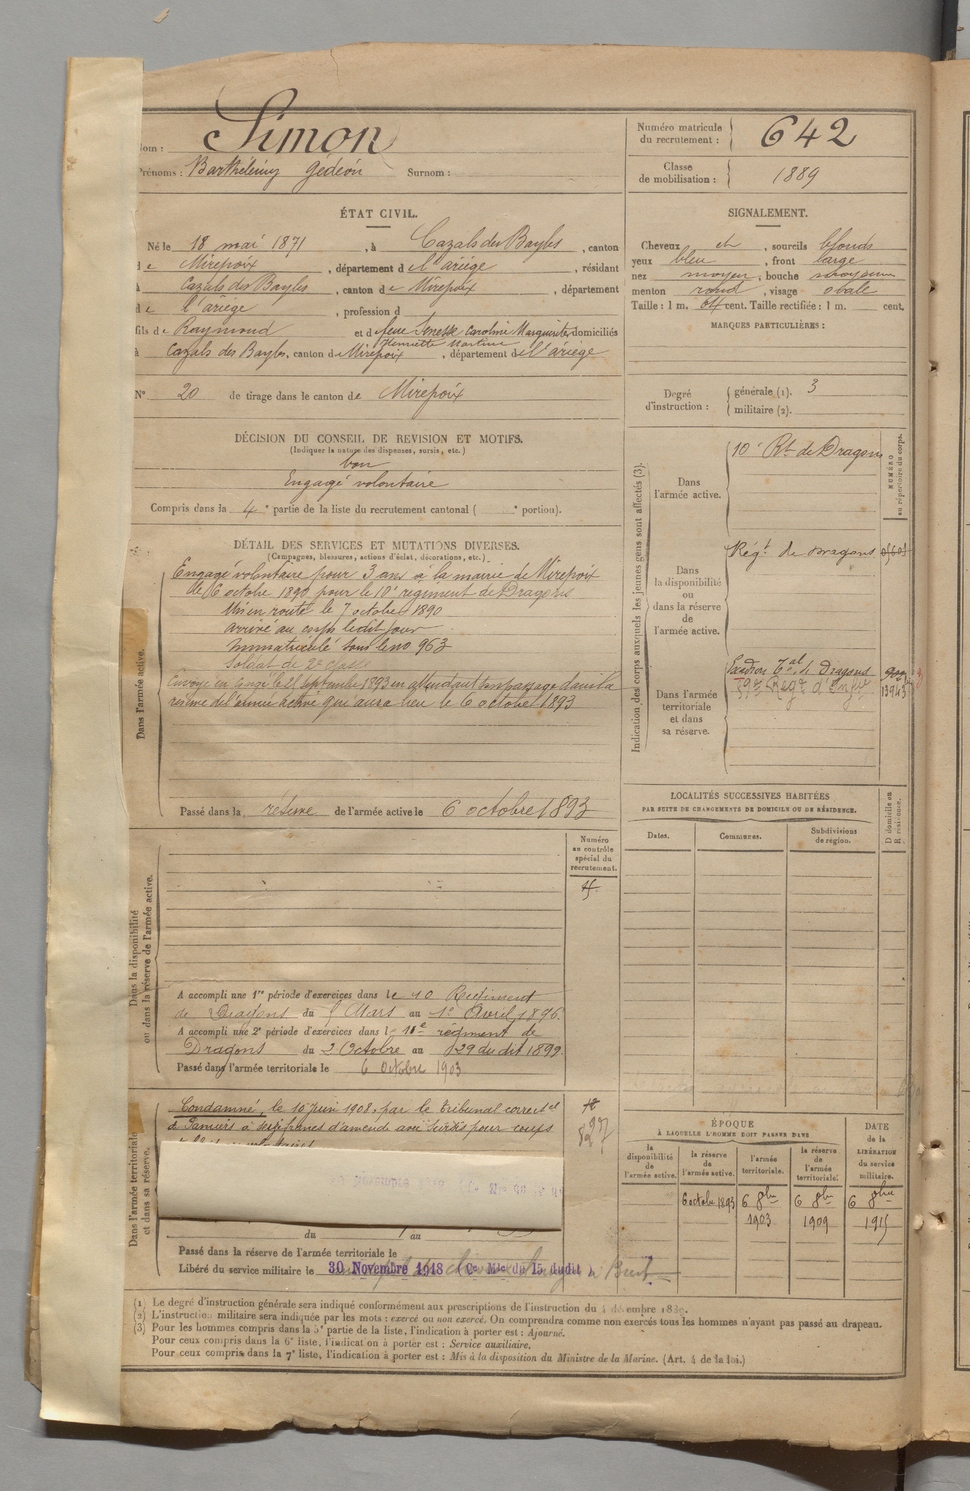 Nom : Simon
Prénoms : Barthélémy Gédéon Surnom :
Numéro matricule du recrutement : 642
Classe de mobilisation : 1889
ÉTAT CIVIL.
Né le 18 mai 1871, à Cazals des Bayles, canton
de Mirepoix, département de l'ariège, résidant
à Cazals des Bayles, canton de Mirepoix, département
de l'ariège, profession d
fils de Raymond et de feue Senesse Caroline Marguerite domiciliés
Henriette Martine
à Cazals des Bayles, canton de Mirepoix, département de l'ariège
N° 20 de tirage dans le canton de Mirepoix
SIGNALEMENT.
Cheveux et, sourcils blonds
yeux bleu, front large
nez moyen, bouche moyenne
menton rond, visage ovale
Taille : 1 m. 64 cent. Taille rectifiée : 1 m. cent.
MARQUES PARTICULIÈRES :
Degré d'instruction :
générale (1). 3
militaire (2).
DÉCISION DU CONSEIL DE REVISION ET MOTIFS.
(Indiquer la nature des dispenses, sursis, etc.)
bon
Engagé volontaire
Compris dans la 4e partie de la liste du recrutement cantonal ( e portion).
DÉTAIL DES SERVICES ET MUTATIONS DIVERSES.
(Campagnes, blessures, actions d'éclat, décorations, etc.)
Dans l'armée active.
Engagé volontaire pour 3 ans à la mairie de Mirepoix
le 6 octobre 1890 pour le 10e régiment de Dragons
Mis en route le 7 octobre 1890
arrivé au corps ledit jour
Immatriculé sous le no 963
Soldat de 2e classe
Envoyé en congé le 21 septembre 1893 en attendant son passage dans la
réserve de l'armée active qui aura lieu le 6 octobre 1893
Passé dans la réserve de l'armée active le 6 octobre 1893
Indication des corps auxquels les jeunes gens sont affectés (3).
NUMÉRO au répertoire du corps.
Dans l'armée active.
10e Rt de Dragons
Dans la disponibilité ou dans la réserve de l'armée active.
Régt de Dragons
Dans l'armée territoriale et dans sa réserve.
Escadron Tal de Dragons
Régt d'Infie
13943
LOCALITÉS SUCCESSIVES HABITÉES
PAR SUITE DE CHANGEMENTS DE DOMICILE OU DE RÉSIDENCE.
Dates. Communes. Subdivisions de région.
D domicile ou R résidence.
Dans la disponibilité ou dans la réserve de l'armée active.
Numéro au contrôle spécial du recrutement.
A accompli une 1re période d'exercices dans le 10 Régiment
de Dragons du 5 Mars au 1er Avril 1896.
A accompli une 2e période d'exercices dans le 10e régiment de
Dragons du 2 Octobre au 29 du dit 1899.
Passé dans l'armée territoriale le 6 octobre 1903
Dans l'armée territoriale et dans sa réserve.
Condamné, le 10 juin 1908, par le tribunal correctel
de Pamiers à francs d'amende avec sursis pour coups
du au
Passé dans la réserve de l'armée territoriale le
Libéré du service militaire le 30 Novembre 1918 Ce Mle du 15 dudit
ÉPOQUE
À LAQUELLE L'HOMME DOIT PASSER DANS
la disponibilité de l'armée active.
la réserve de l'armée active.
l'armée territoriale.
la réserve de l'armée territoriale.
DATE de la LIBÉRATION du service militaire.
6 octobre 1893
6 8bre 1903
6 8bre 1909
6 8bre 1915
(1) Le degré d'instruction générale sera indiqué conformément aux prescriptions de l'instruction du 4 décembre 1889.
(2) L'instruction militaire sera indiquée par les mots : exercé ou non exercé. On comprendra comme non exercés tous les hommes n'ayant pas passé au drapeau.
(3) Pour les hommes compris dans la 5e partie de la liste, l'indication à porter est : Ajourné.
Pour ceux compris dans la 6e liste, l'indication à porter est : Service auxiliaire.
Pour ceux compris dans la 7e liste, l'indication à porter est : Mis à la disposition du Ministre de la Marine. (Art. 4 de la loi.)